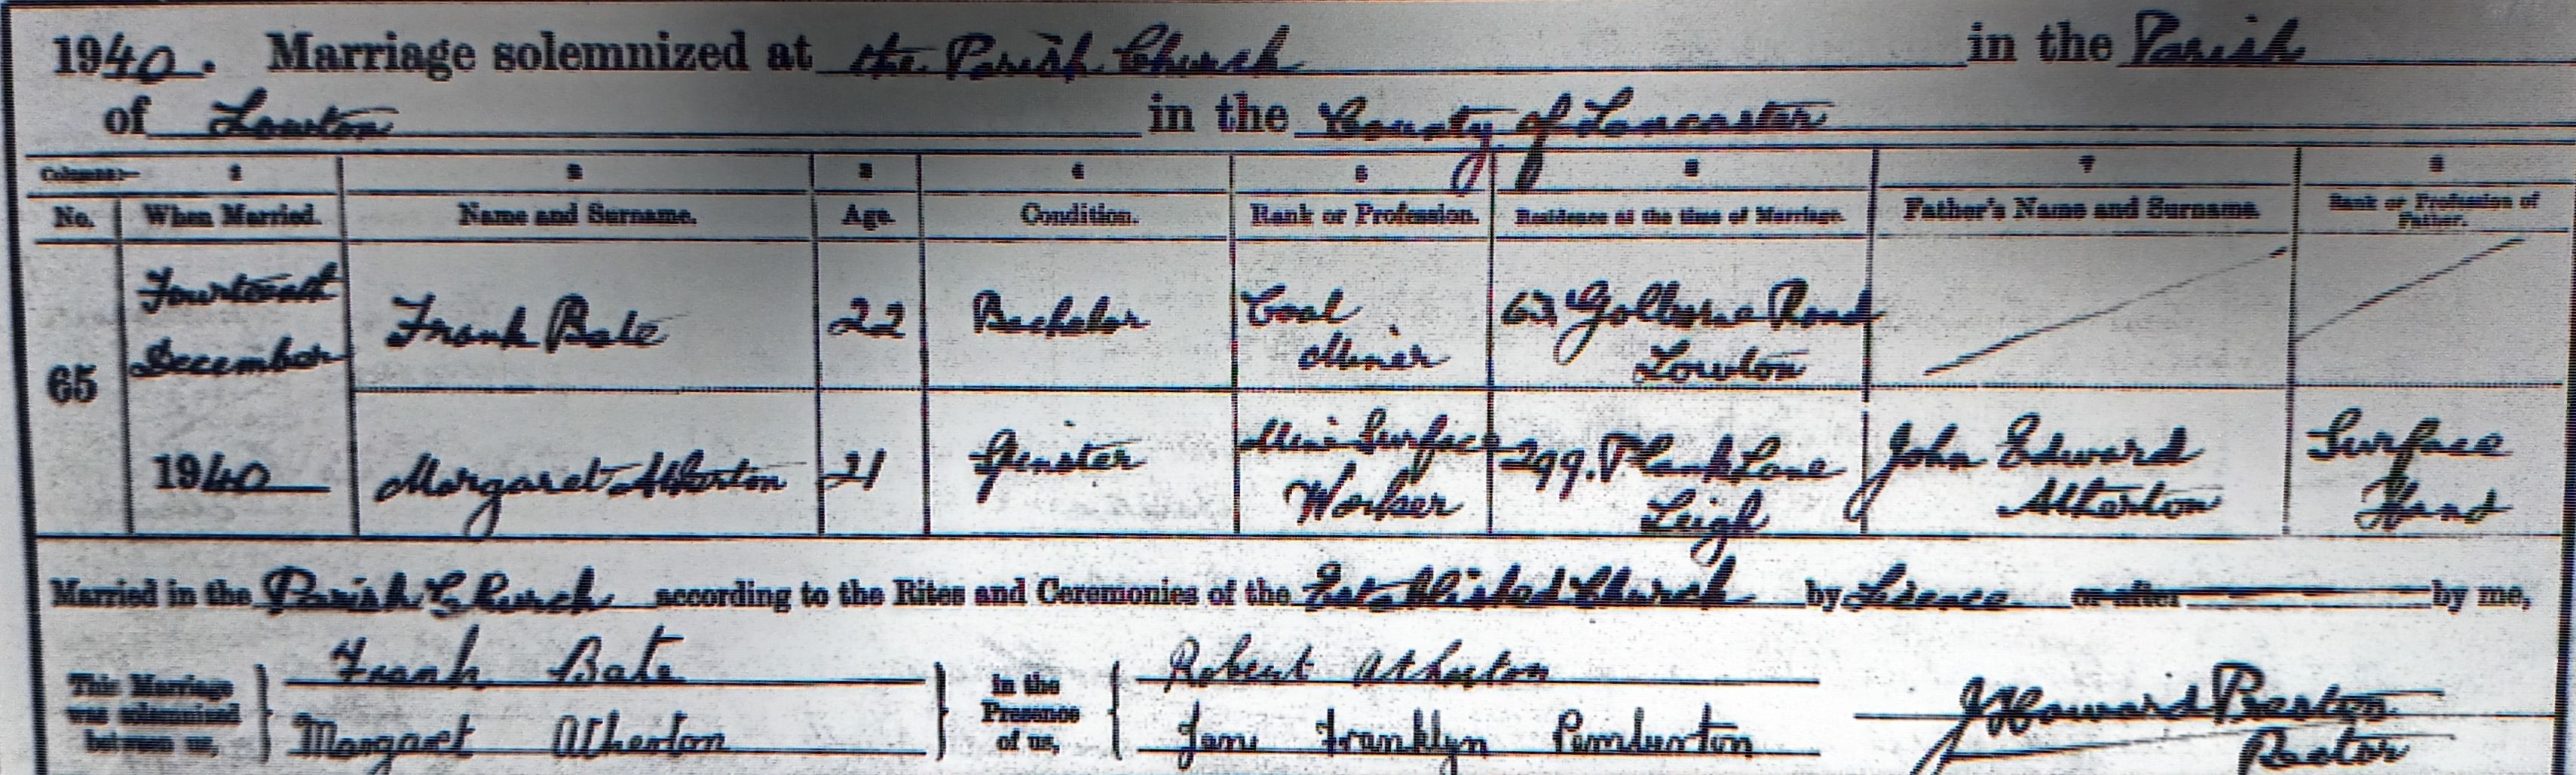 1940. Marriage solemnized at the Parish Church in the Parish
of Lowton in the County of Lancaster
Columns:— 1 2 3 4 5 6 7 8
No. When Married. Name and Surname. Age. Condition. Rank or Profession. Residence at the time of Marriage. Father's Name and Surname. Rank or Profession of Father.
65 Fourteenth December 1940
Frank Bate 22 Bachelor Coal Miner Golborne Road Lowton
Margaret Atherton 21 Spinster Mine Surface Worker 299. Plank Lane Leigh John Edward Atherton Surface Hand
Married in the Parish Church according to the Rites and Ceremonies of the Established Church by Licence or after by me,
This Marriage was solemnized between us,
Frank Bate
Margaret Atherton
in the Presence of us,
Robert Atherton
Jane Franklyn Pemberton
J Howard Preston
Rector